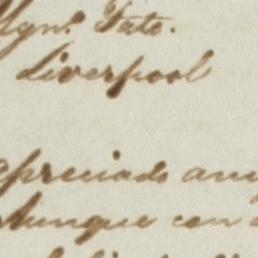 Ygn.º Tato.
Liverpool
Apreciado ami
Aunque con